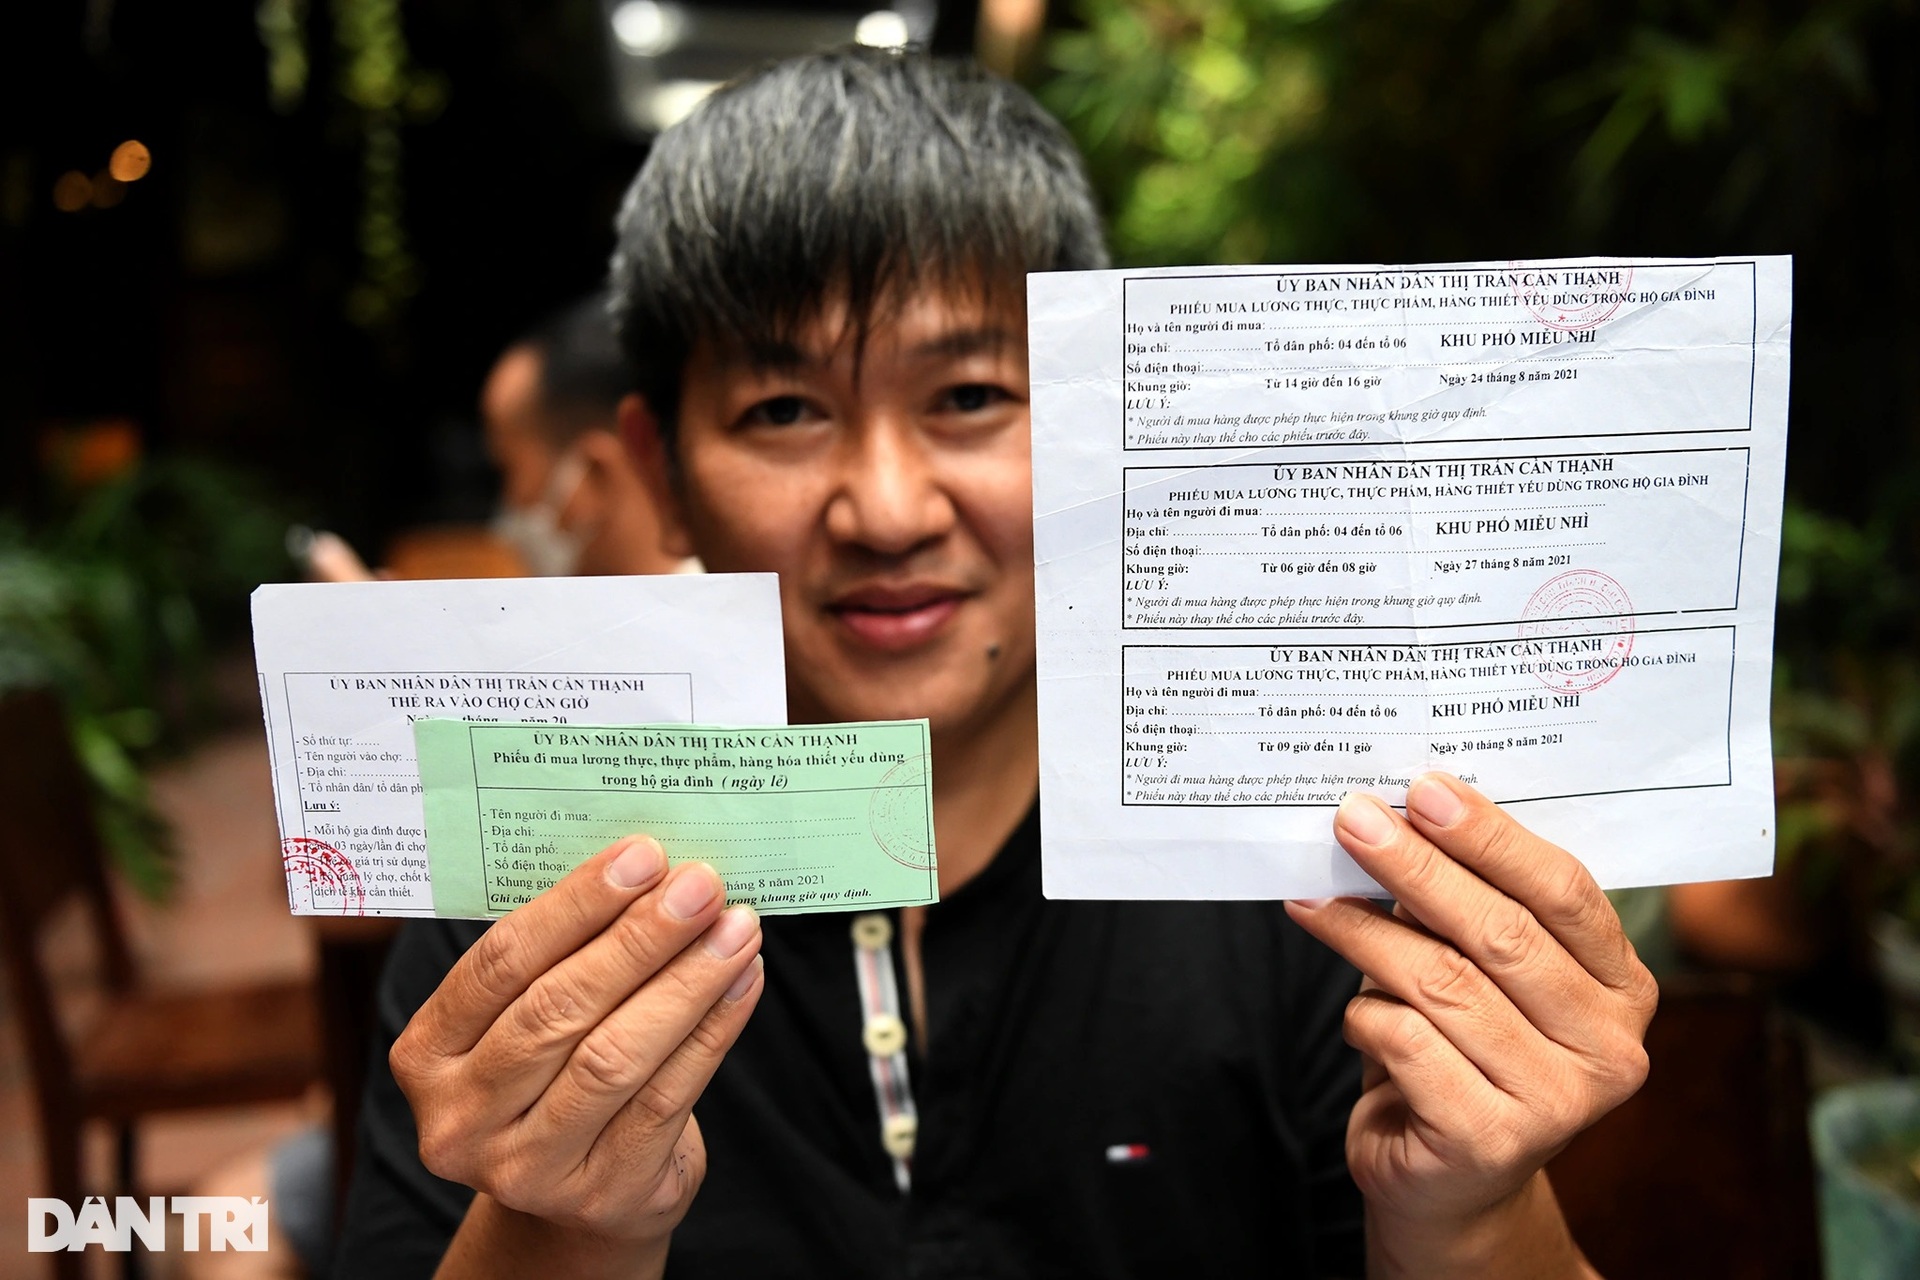 ỦY BAN NHÂN DÂN THỊ TRẤN CẦN THẠNH
PHIẾU MUA LƯƠNG THỰC, THỰC PHẨM, HÀNG THIẾT YẾU DÙNG TRONG HỘ GIA ĐÌNH
Họ và tên người đi mua:
Địa chỉ: Tổ dân phố: 04 đến tổ 06 KHU PHỐ MIỄU NHÌ
Số điện thoại:
Khung giờ: Từ 14 giờ đến 16 giờ Ngày 24 tháng 8 năm 2021
LƯU Ý:
* Người đi mua hàng được phép thực hiện trong khung giờ quy định.
* Phiếu này thay thế cho các phiếu trước đây.
ỦY BAN NHÂN DÂN THỊ TRẤN CẦN THẠNH
PHIẾU MUA LƯƠNG THỰC, THỰC PHẨM, HÀNG THIẾT YẾU DÙNG TRONG HỘ GIA ĐÌNH
Họ và tên người đi mua:
Địa chỉ: Tổ dân phố: 04 đến tổ 06 KHU PHỐ MIỄU NHÌ
Số điện thoại:
Khung giờ: Từ 06 giờ đến 08 giờ Ngày 27 tháng 8 năm 2021
LƯU Ý:
* Người đi mua hàng được phép thực hiện trong khung giờ quy định.
* Phiếu này thay thế cho các phiếu trước đây.
ỦY BAN NHÂN DÂN THỊ TRẤN CẦN THẠNH
PHIẾU MUA LƯƠNG THỰC, THỰC PHẨM, HÀNG THIẾT YẾU DÙNG TRONG HỘ GIA ĐÌNH
Họ và tên người đi mua:
Địa chỉ: Tổ dân phố: 04 đến tổ 06 KHU PHỐ MIỄU NHÌ
Số điện thoại:
Khung giờ: Từ 09 giờ đến 11 giờ Ngày 30 tháng 8 năm 2021
LƯU Ý:
* Người đi mua hàng được phép thực hiện trong khung định.
* Phiếu này thay thế cho các phiếu trước
ỦY BAN NHÂN DÂN THỊ TRẤN CẦN THẠNH
THẺ RA VÀO CHỢ CẦN GIỜ
tháng năm 20
- Số thứ tự: ......
- Tên người vào chợ:
- Địa chỉ:
- Tổ nhân dân/ tổ dân
Lưu ý:
- Mỗi hộ gia đình được
cách 03 ngày/lần đi chợ
- Thẻ có giá trị sử dụng
quản lý chợ, chốt
dịch tễ khi cần thiết.
ỦY BAN NHÂN DÂN THỊ TRẤN CẦN THẠNH
Phiếu đi mua lương thực, thực phẩm, hàng hóa thiết yếu dùng
trong hộ gia đình ( ngày lẻ)
- Tên người đi mua:
- Địa chỉ:
- Tổ dân phố:
- Số điện thoại:
- Khung giờ tháng 8 năm 2021
Ghi chú trong khung giờ quy định.
DÂN TRÍ